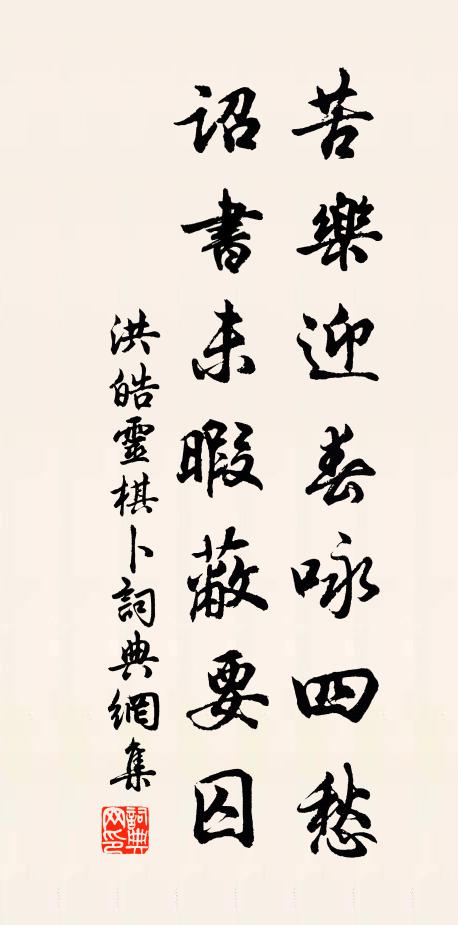 苦樂迎春咏四愁
詔書未暇蔽要囚
洪皓靈棋卜詞典網集
詞典網印